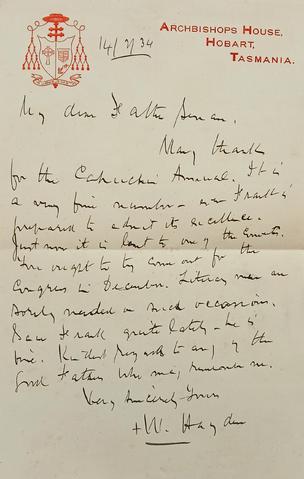 ARCHBISHOPS HOUSE,
HOBART,
TASMANIA.
14/7/34
My dear Father Senan.
Many thanks
for the Capuchin Annual. It is
a very fine number - even Frank is
prepared to admit its excellence.
Just now it is lent to one of the Convents.
You ought to try come out for the
Congress in December. Literary men are
sorely needed on such occasions.
Saw Frank quite lately - he is
fine. Kindest regards to any of the
Good Fathers who may remember me.
Very sincerely Yours
+ W. Hayden